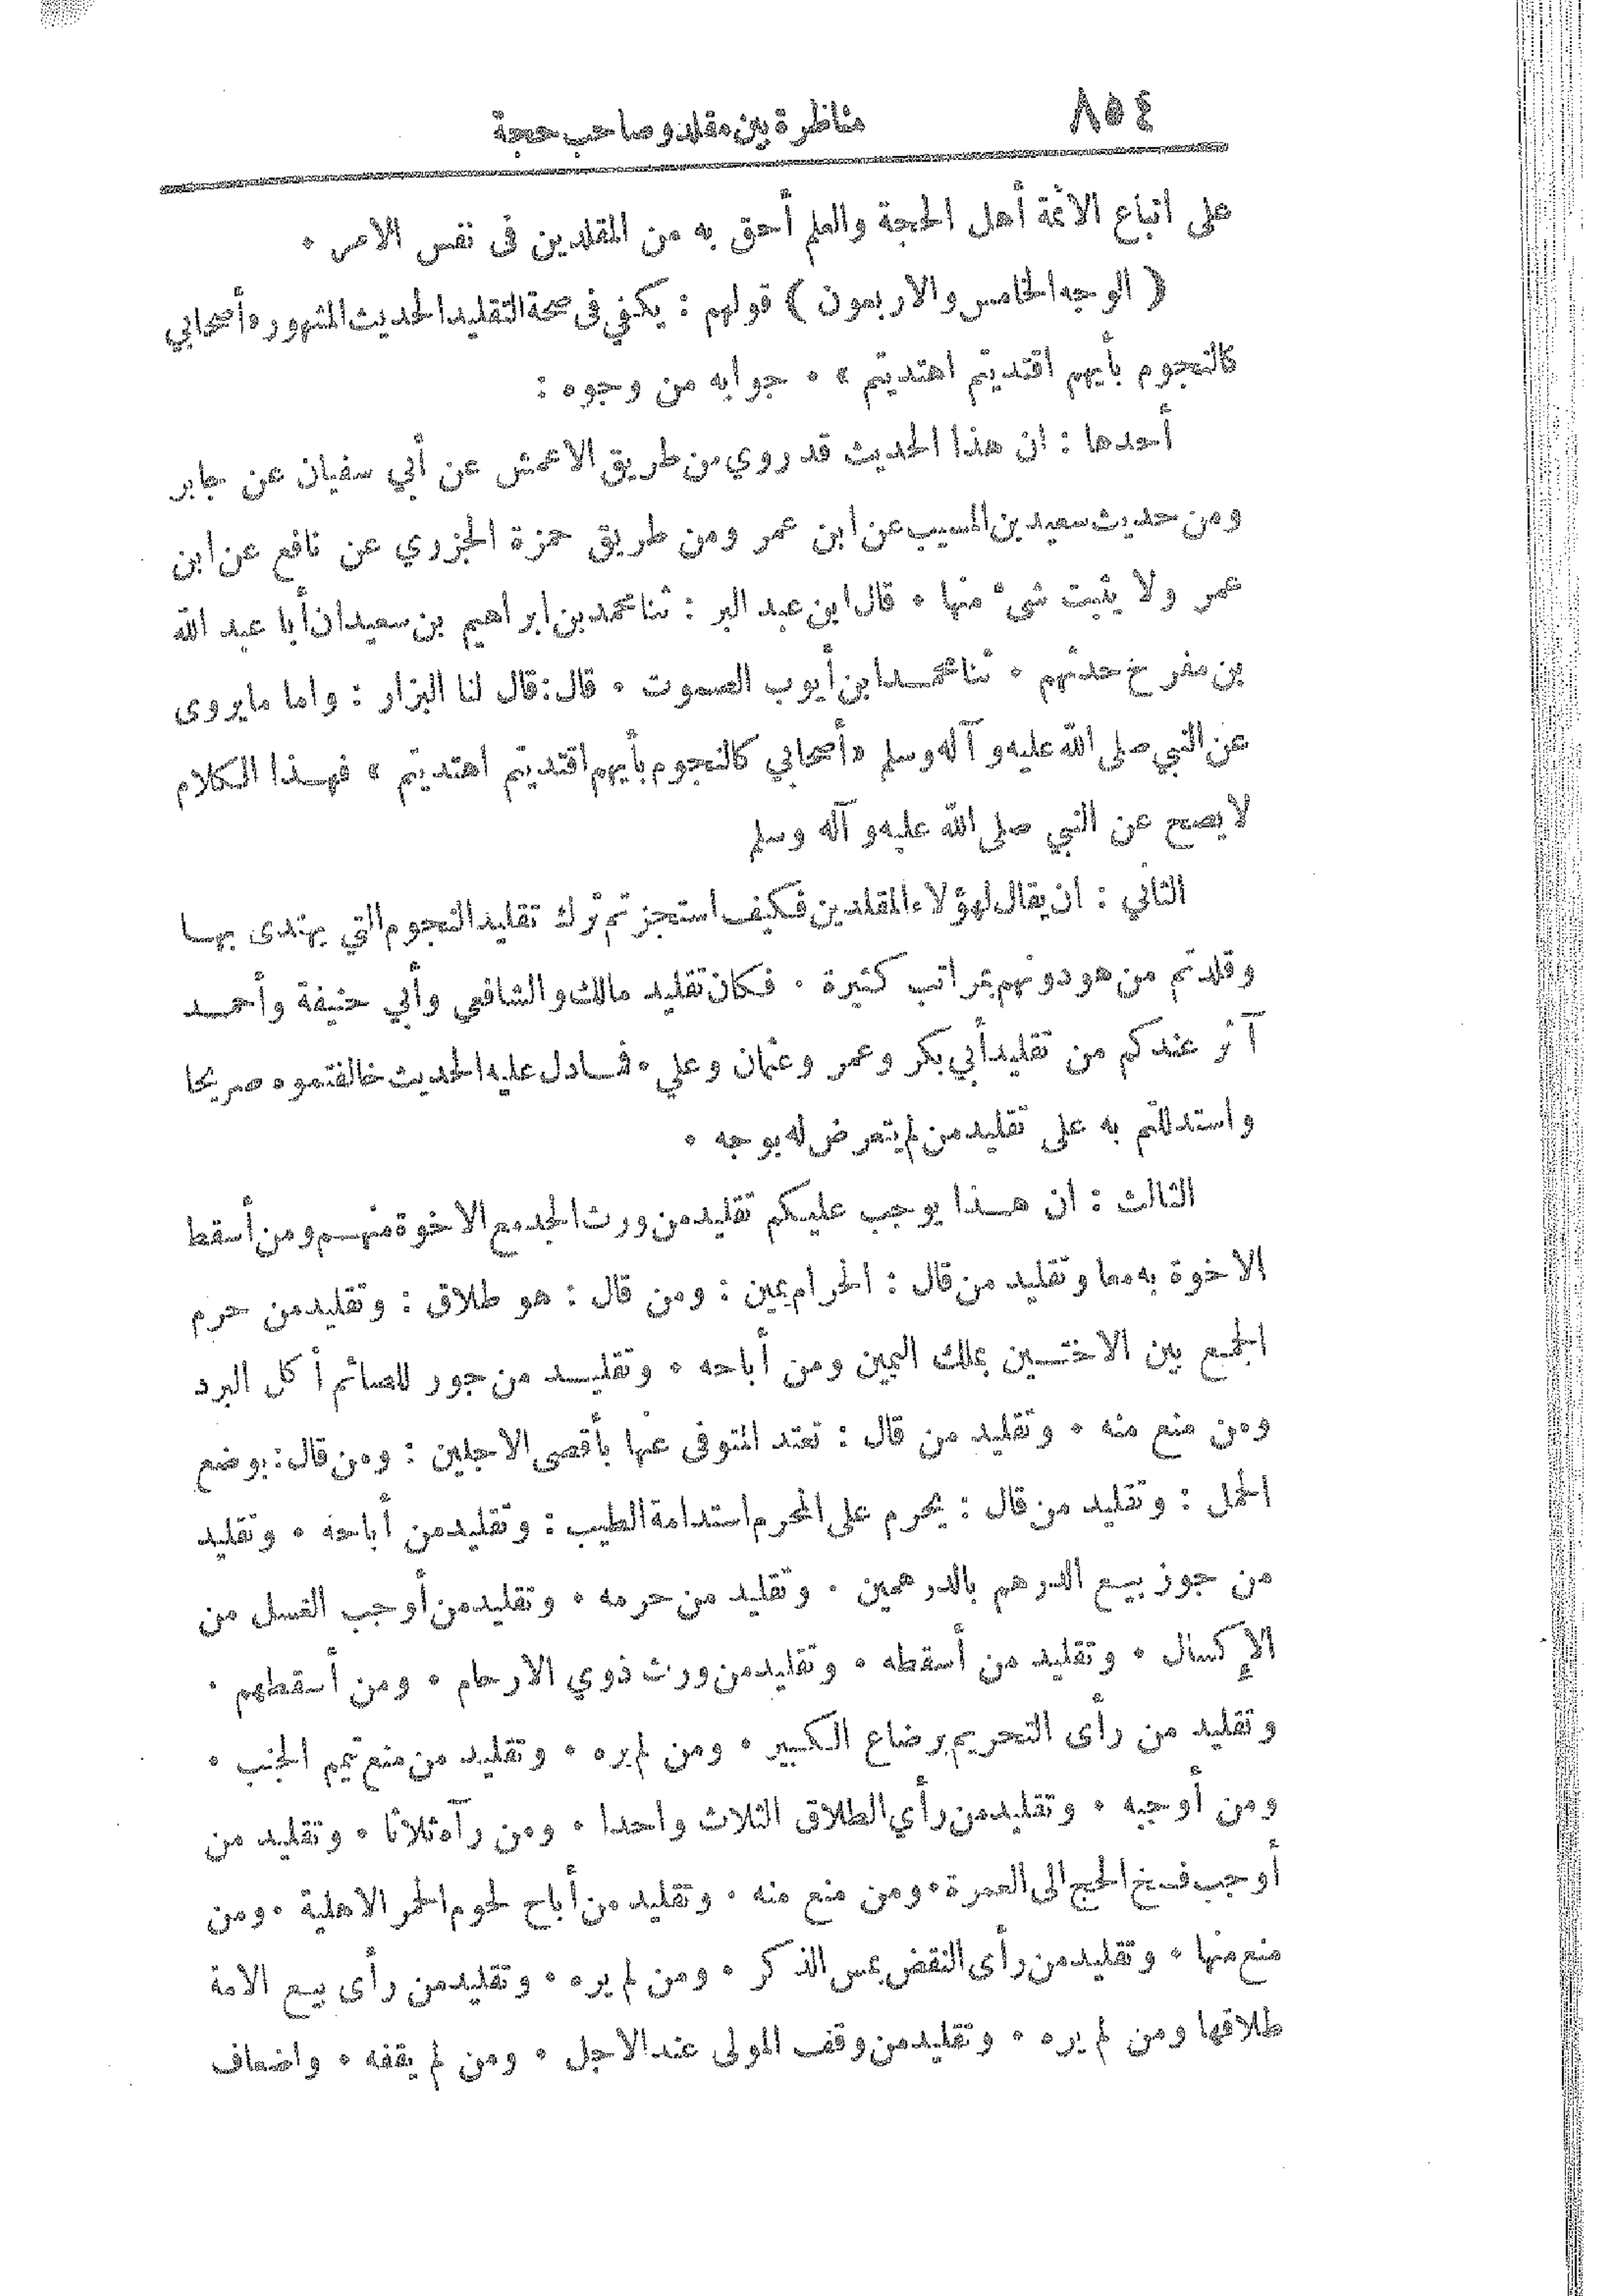 ٨٥٤ مناظرة بين مقلد وصاحب حجة
على اتباع الائمة أهل الحجة والعلم أحق به من المقلدين فى نفس الامر .
( الوجه الخامس والاربعون ) قولهم : يكفي فى صحة التقليد الحديث المشهور «أصحابي
كالنجوم بأيهم اقتديتم اهتديتم » . جوابه من وجوه :
أحدها : ان هذا الحديث قد روي من طريق الاعمش عن أبي سفيان عن جابر
ومن حديث سعيد بن المسيب عن ابن عمر ومن طريق حمزة الجزري عن نافع عن ابن
عمر ولا يثبت شيء منها . قال ابن عبد البر : ثنا محمد بن ابراهيم بن سعيد ان أبا عبد الله
بن مفرح حدثهم . ثنا محمد ابن أيوب الصموت . قال: قال لنا البزار : واما ما يروى
عن النبي صلى الله عليه و آله وسلم «أصحابي كالنجوم بأيهم اقتديتم اهتديتم » فهذا الكلام
لا يصح عن النبي صلى الله عليه و آله وسلم
الثاني : ان يقال لهؤلاء المقلدين فكيف استجزتم ترك تقليد النجوم التي يهتدى بها
وقلدتم من هو دونهم بمراتب كثيرة . فكان تقليد مالك والشافعي وأبي حنيفة وأحمد
آثر عندكم من تقليد أبي بكر وعمر وعثمان وعلي . فما دل عليه الحديث خالفتموه صريحا
واستدللتم به على تقليد من لم يتعرض له بوجه .
الثالث : ان هذا يوجب عليكم تقليد من ورث الجد مع الاخوة منهم ومن أسقط
الاخوة به معا وتقليد من قال : الحرام يمين : ومن قال : هو طلاق : وتقليد من حرم
الجمع بين الاختين بملك اليمين ومن أباحه . وتقليد من جور للصائم أكل البرد
ومن منع منه . وتقليد من قال : تعتد المتوفى عنها بأقصى الاجلين : ومن قال : بوضع
الحمل : وتقليد من قال : يحرم على المحرم استدامة الطيب : وتقليد من أباحه . وتقليد
من جوز بيع الدرهم بالدرهمين . وتقليد من حرمه . وتقليد من أوجب الغسل من
الإكسال . وتقليد من أسقطه . وتقليد من ورث ذوي الارحام . ومن أسقطهم .
وتقليد من رأى التحريم برضاع الكبير . ومن لم يره . وتقليد من منع تيمم الجنب .
ومن أوجبه . وتقليد من رأي الطلاق الثلاث واحدا . ومن رآه ثلاثا . وتقليد من
أوجب فسخ الحج الى العمرة . ومن منع منه . وتقليد من أباح لحوم الحمر الاهلية . ومن
منع منها . وتقليد من رأى النقض بمس الذكر . ومن لم يره . وتقليد من رأى بيع الامة
طلاقها ومن لم يره . وتقليد من وقف المولى عند الاجل . ومن لم يقفه . واضعاف